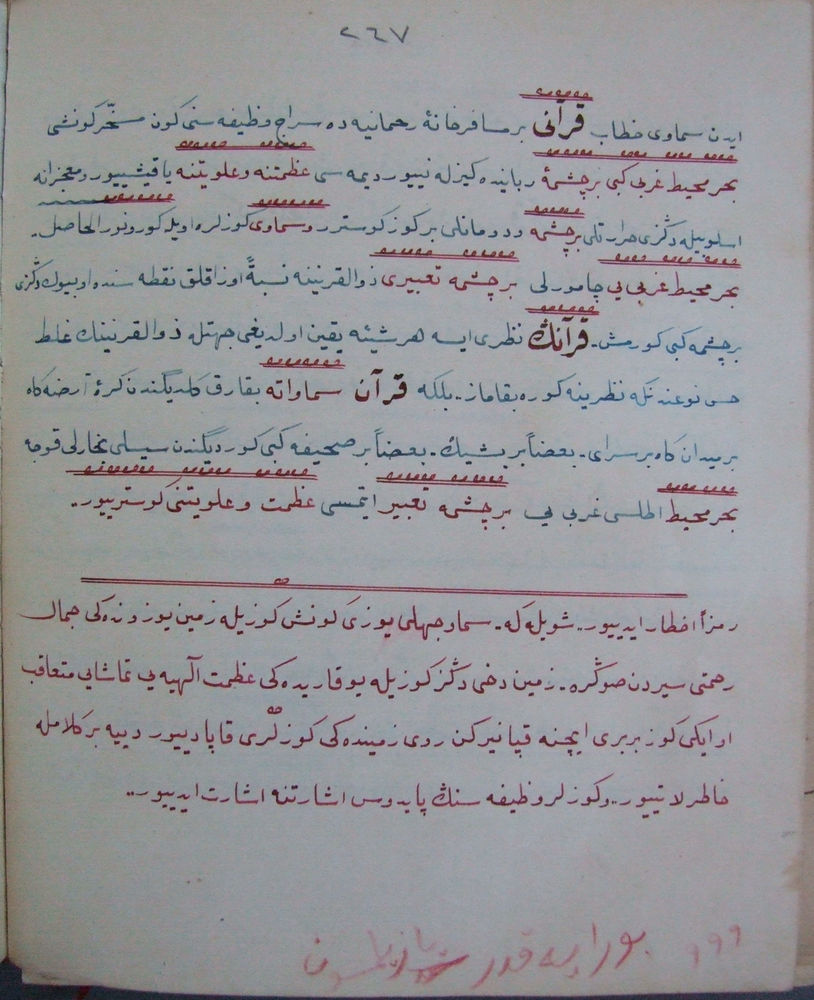 ٢٦٧
ايدن سماوى خطاب قرآنى بر مسافرخانهٔ رحمانيه ده سراج وظيفه سنى كون مسخّر كونشى
بحر محيط غربى كبى بر چشمهٔ ربانيده كيزلنييور ديمه سى عظمتنه و علويتنه ياقيشييور و معجزانه
اسلوبيله دڭزى حرارتلى بر چشمه و دومانلى بر كوز كوسترر و سماوى كوزلره اويله كورونور الحاصل.
بحر محيط غربى يى چامورلى بر چشمه تعبيرى ذوالقرنينه نسبةً اوزاقلق نقطه سنده او بيوك دڭزى
بر چشمه كبى كورمش. قرآنڭ نظرى ايسه هر شيئه يقين اولديغى جهتله ذوالقرنينڭ غلط
حس نوعندكه نظرينه كوره بقاماز. بلكه قرآن سماواته بقارق كلديگندن كرهٔ ارضه كاه
بر ميدان كاه بر سراى. بعضاً بر بشيك. بعضاً بر صحيفه كبى كورديگندن سيسلى بخارلى قوجه
بحر محيط اطلسى غربى يى بر چشمه تعبير ايتمسى عظمت و علويتنى كوسترييور..
رمزاً اخطار ايدييور.. شويله كه. سماوجهلى يوزى كونش كوزيله زمين يوزونده كى جمال
رحمتى سيردن صوڭره. زمين دخى دڭز كوزيله يوقاريده كى عظمت الٓهيه يى تماشايى متعاقب
او ايكى كوز بربرى ايچنه قپانيركن روى زمينده كى كوزلرى قاپادييور دييه بر كلامله
خاطرلاتييور.. و كوزلر وظيفه سنڭ پايدوس اشارتنه اشارت ايدييور..
بورايه قدر يازيلسون